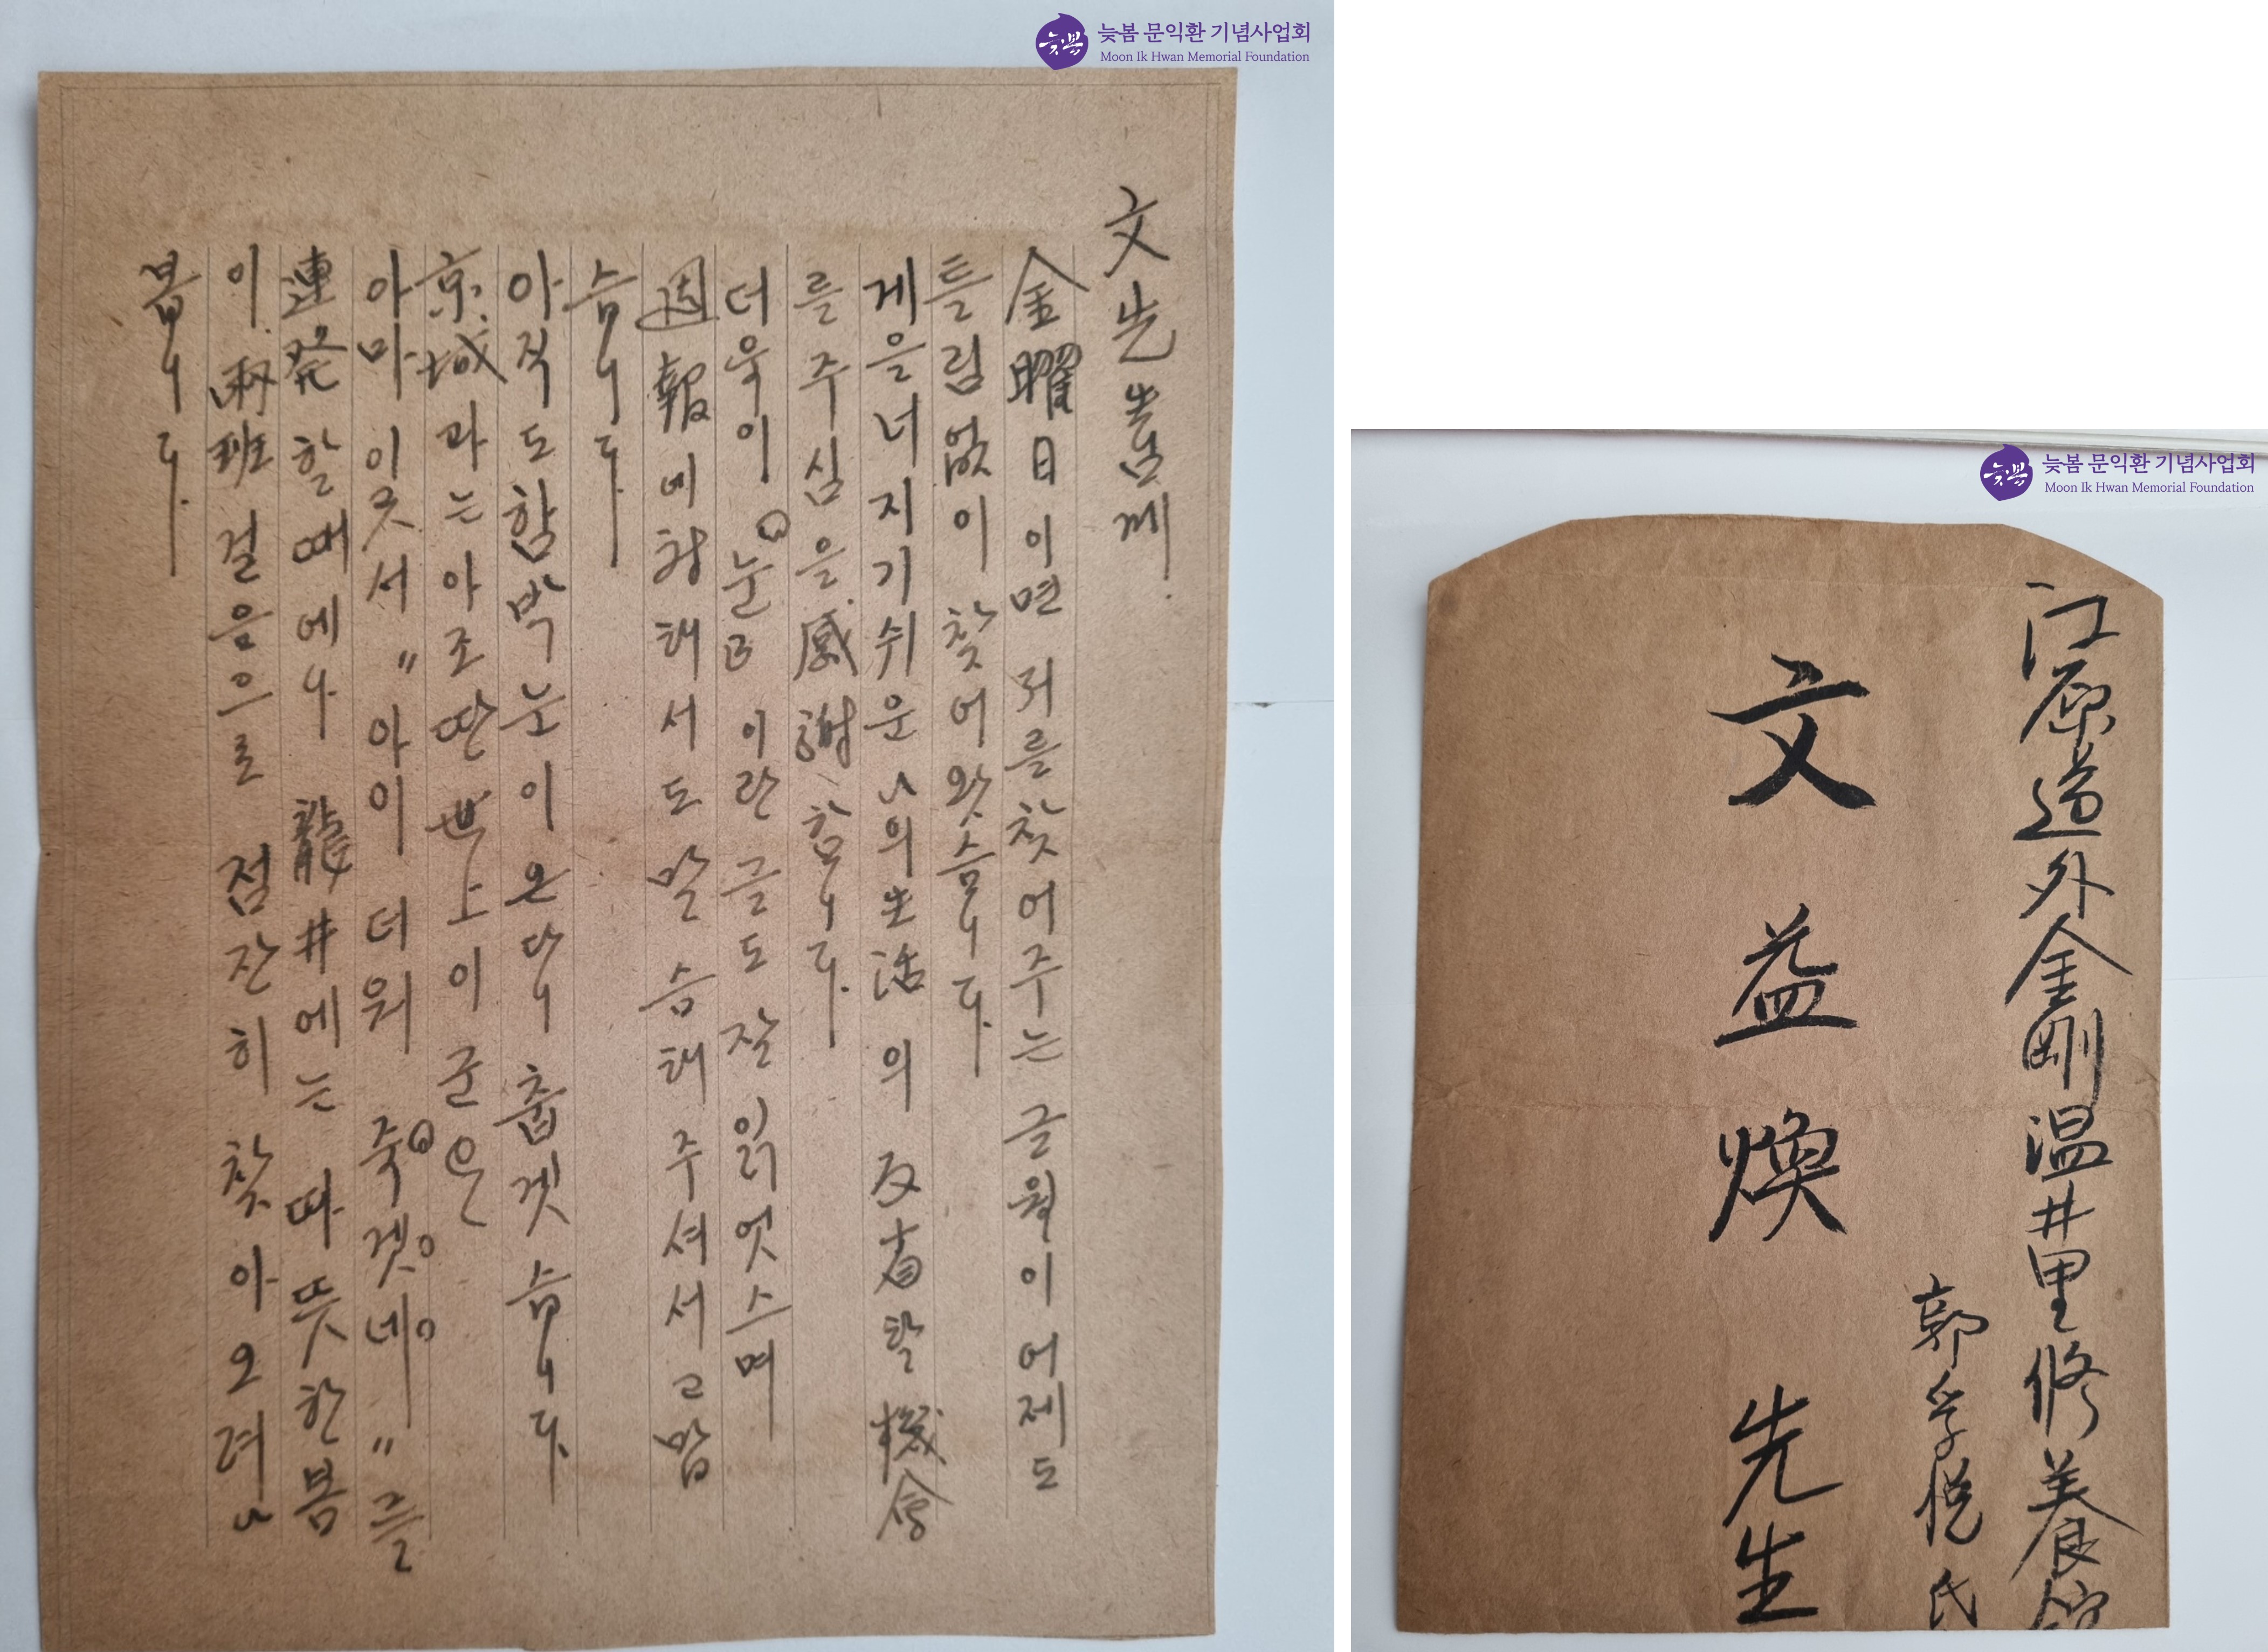 늦봄 문익환 기념사업회
Moon Ik Hwan Memorial Foundation
文先生님께.
金曜日이면 저를 찾어주는 글월이 어제도
틀림없이 찾어왓슴니다.
게을너지기쉬운 人의生活의 反省할 機會
를 주심을 感謝함니다.
더욱이 눈 이란 글도 잘 읽엇스며
週報에 하야서도 말슴해 주셔서 고맙
슴니다.
아직도 함박눈이 온다니 춥겟슴니다.
京城과는 아조 딴 世上이군요
아마 잇서 〃아이 더워 죽겟네〃를
連発할때에나 龍井에는 따뜻한 봄
이 兩班걸음으로 점잔히 찾아오려나
봄니다.
늦봄 문익환 기념사업회
Moon Ik Hwan Memorial Foundation
江原道外金剛温井里修養館
郭孚悅氏
文益煥 先生